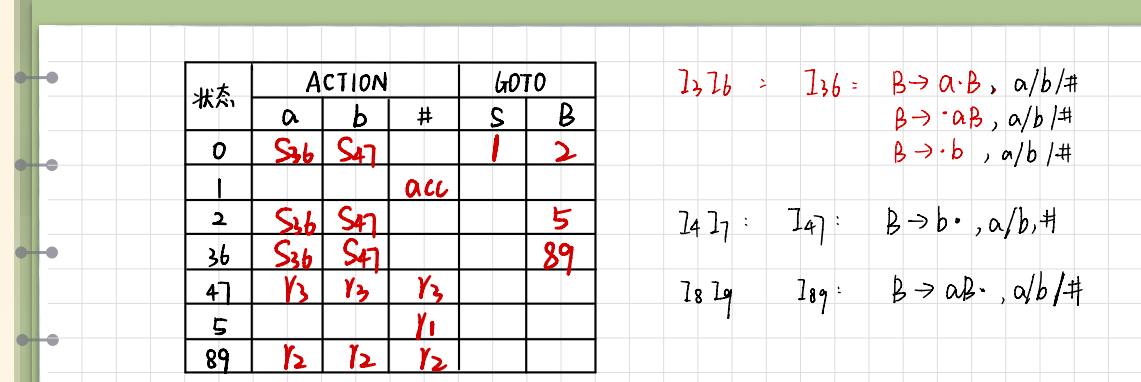 状态 ACTION GOTO
a b # S B
0 S36 S47 1 2
1 acc
2 S36 S47 5
36 S36 S47 89
47 r3 r3 r3
5 r1
89 r2 r2 r2
I3 I6 : I36 : B→a·B, a/b/#
B→·aB, a/b/#
B→·b , a/b/#
I4 I7 : I47 : B→b· , a/b,#
I8 I9 I89 : B→aB· , a/b/#